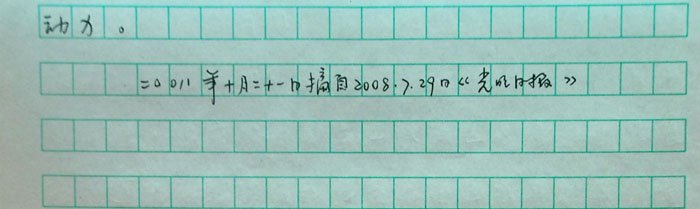 动力。
二0011年十月二十一日摘自2008.7.29日《光明日报》